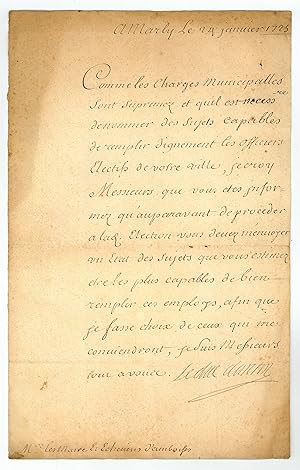 A Marly Le 24 janvier 1725
Comme les Charges Municipalles
sont suprimez et quil est necess.re
denommer des Sujets capables
de remplir dignement les Officiers
Electifs de votre ville, je croy
Messieurs que vous etes infor-
mez qu auparavant de proceder
a lad. Election vous devez menvoyer
un Etat des Sujets que vous estimez
etre les plus capables de bien
remplir ces employs, afin que
je fasse choix de ceux qui me
conviendront, je suis Messieurs
tout a vous. Le duc
Mrs. les Maire Et Echevins d'amboise